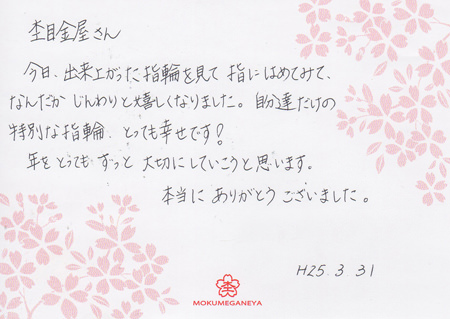 杢目金屋さん
今日、出来上がった指輪を見て 指にはめてみて、
なんだか じんわりと嬉しくなりました。自分達だけの
特別な指輪、とっても幸せです!
年をとっても ずっと 大切にしていこうと思います。
本当に ありがとう ございました。
H25. 3 31
杢
MOKUMEGANEYA